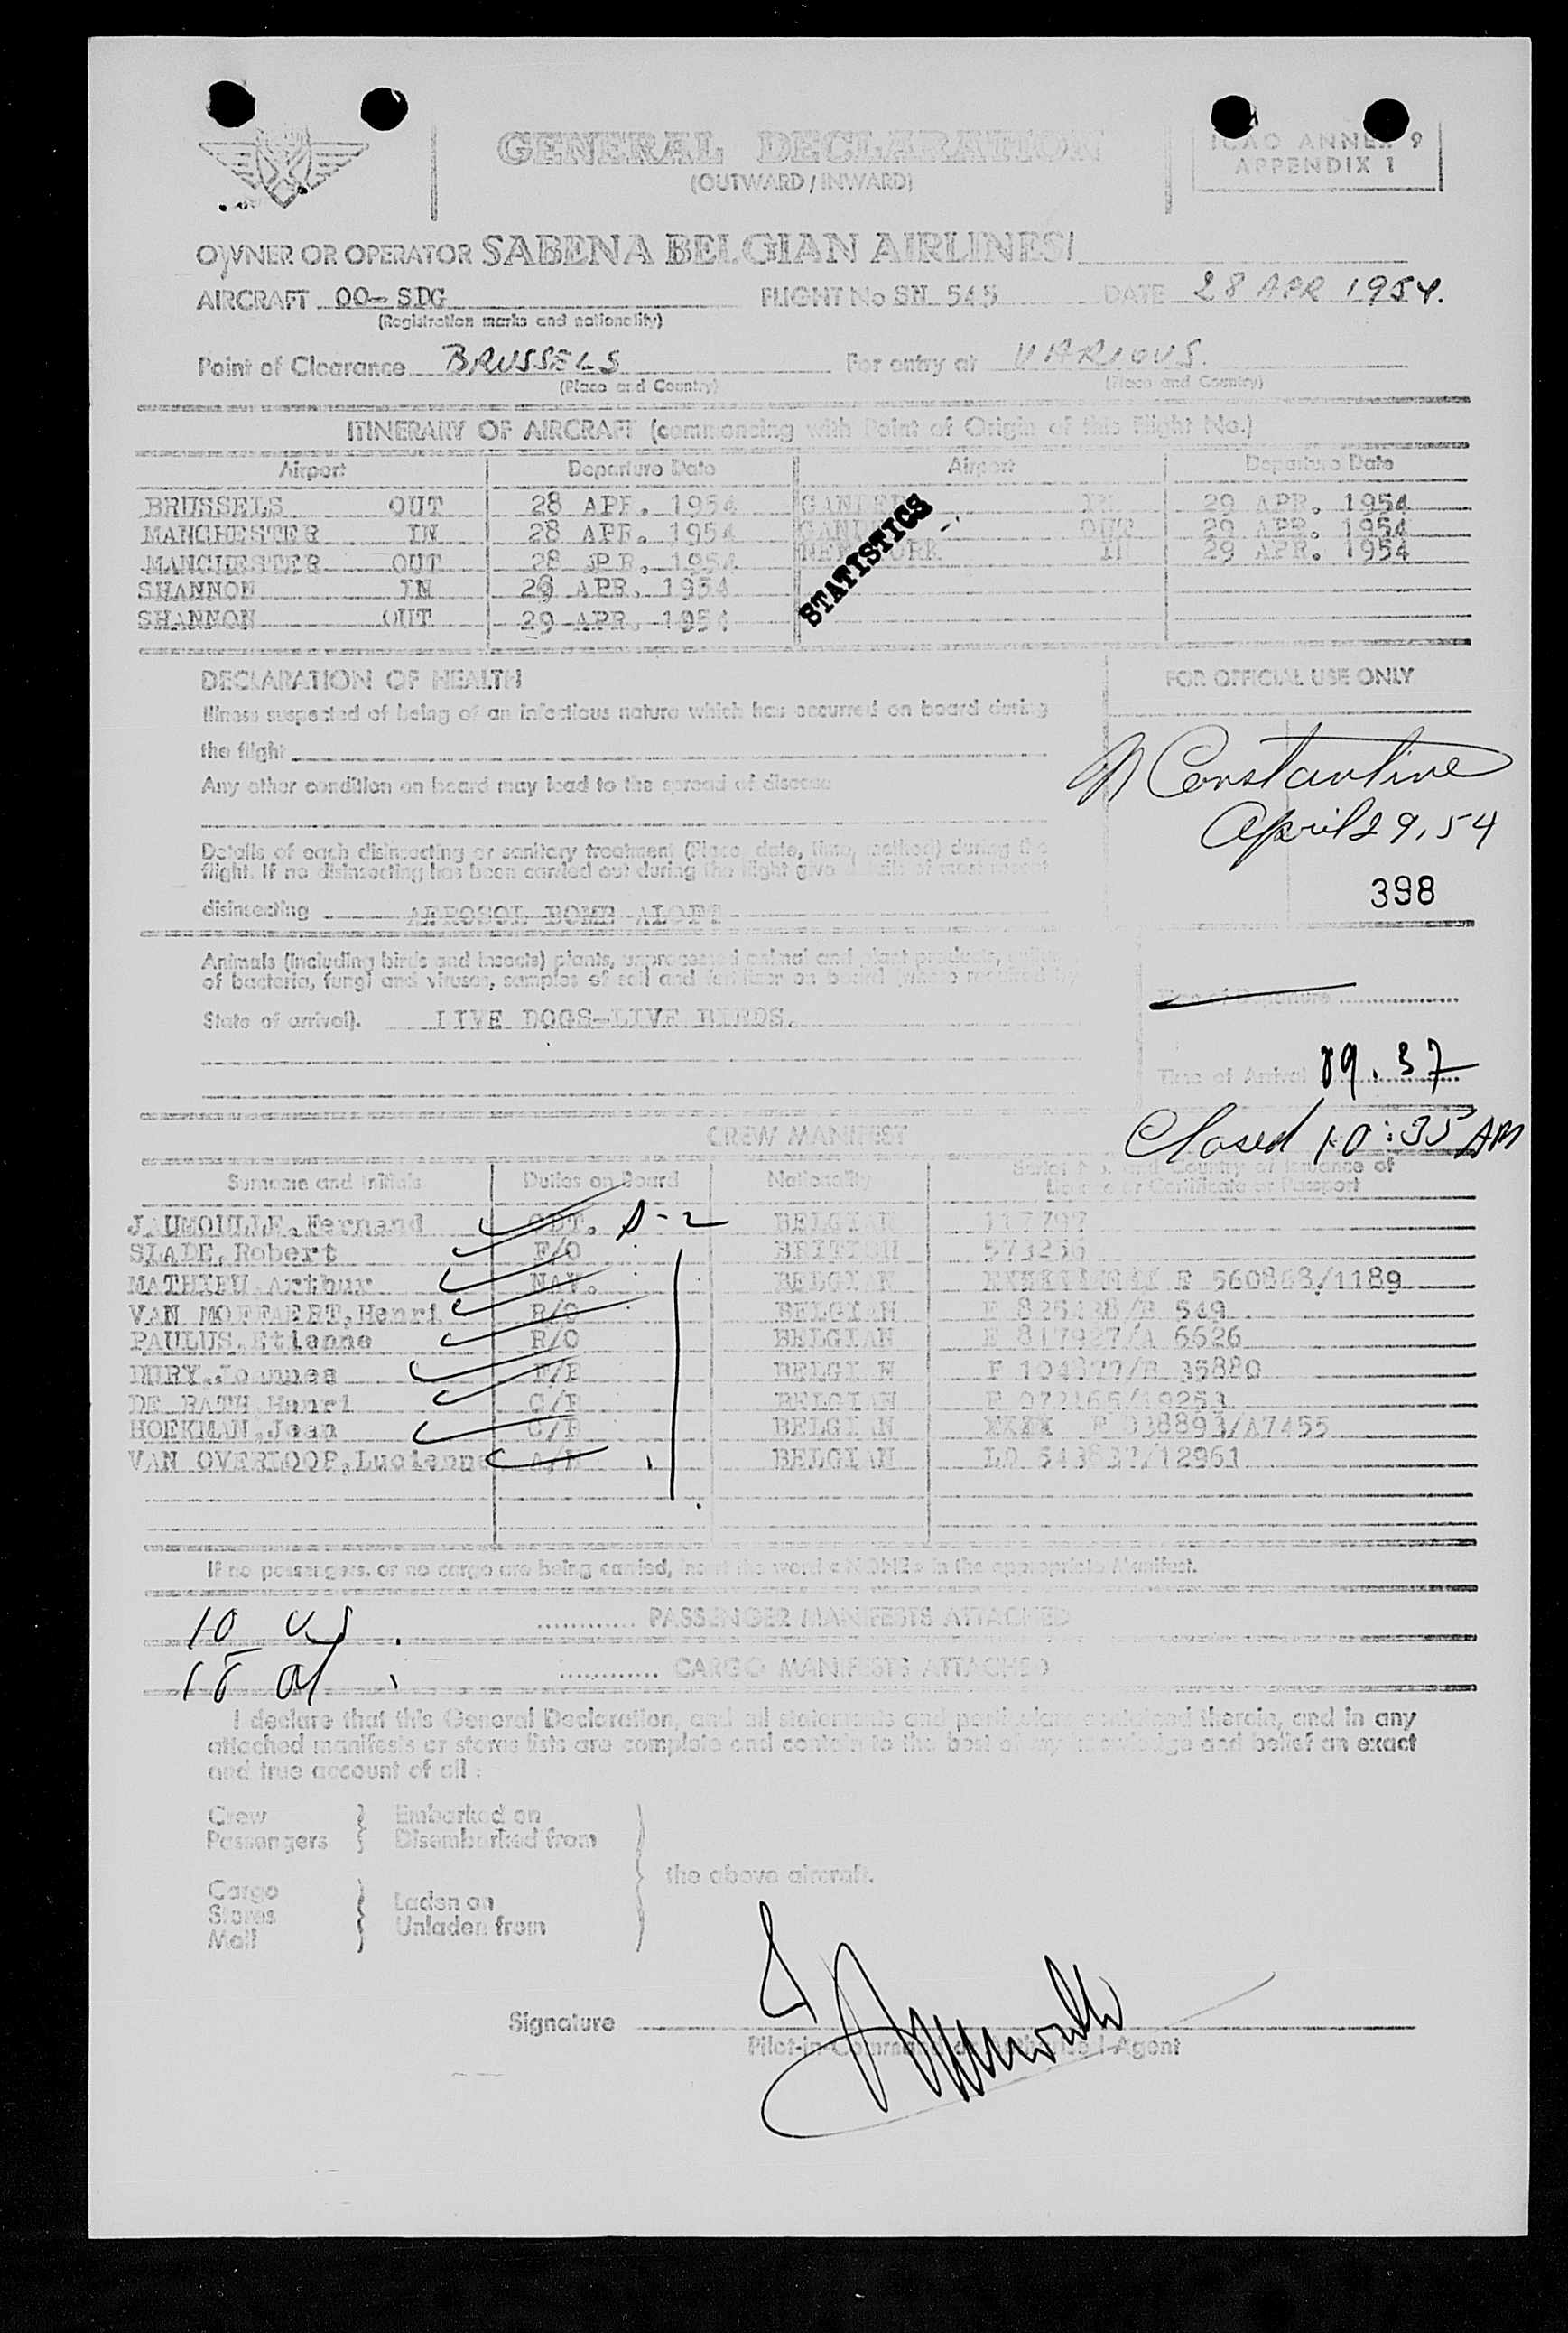 GENERAL DECLARATION
(OUTWARD / INWARD)
ICAO ANNEX 9
APPENDIX 1
OWNER OR OPERATOR SABENA BELGIAN AIRLINES
AIRCRAFT OO-SDG FLIGHT No SN 545 DATE 28 APR 1954.
(Registration marks and nationality)
Point of Clearance BRUSSELS For entry at VARIOUS.
(Place and Country) (Place and Country)
ITINERARY OF AIRCRAFT (commencing with Point of Origin of this Flight No.)
Airport Departure Date Airport Departure Date
BRUSSELS OUT 28 APR. 1954 GANDER IN 29 APR. 1954
MANCHESTER IN 28 APR. 1954 GANDER OUT 29 APR. 1954
MANCHESTER OUT 28 APR. 1954 NEW YORK IN 29 APR. 1954
SHANNON IN APR. 1954
SHANNON OUT 29 APR. 1954
STATISTICS
DECLARATION OF HEALTH
FOR OFFICIAL USE ONLY
Illness suspected of being of an infectious nature which has occurred on board during
the flight
Any other condition on board may lead to the spread of disease
Constantine
April 29, 54
398
Details of each disinsecting or sanitary treatment (Place, date, time, method) during the
flight. If no disinsecting has been carried out during the flight give details of most recent
disinsecting AEROSOL BOMB ALOFT
Animals (including birds and insects) plants, unprocessed animal and plant products,
of bacteria, fungi and viruses, samples of soil and fertilizer on board (where required by
State of arrival). LIVE DOGS-LIVE BIRDS.
Time of Departure
Time of Arrival 09.37
Closed 10:35 AM
CREW MANIFEST
Surname and Initials Duties on Board Nationality Serial No. and Country of Issuance of
Licence or Certificate or Passport
JAUMOULLE, Fernand CDT. D-2 BELGIAN 117797
SLADE, Robert F/O BRITISH
MATHIEU Arthur NAV. BELGIAN F /1189
VAN MOFFAERT, Henri R/O BELGIAN 549
PAULUS, Etienne R/O BELGIAN 6626
DURY, Joannes F/E BELGIAN 35880
DE RATH Henri BELGIAN
HOEKMAN, Jean BELGIAN F 038893/A7455
VAN OVERLOOP, Lucienne BELGIAN /12961
If no passengers, or no cargo are being carried, insert the word « NONE » in the appropriate Manifest.
10 US
PASSENGER MANIFESTS ATTACHED
18 al
CARGO MANIFESTS ATTACHED
I declare that this General Declaration, and all statements and particulars contained therein, and in any
attached manifests or stores lists are complete and contain to the best of my knowledge and belief an exact
and true account of all :
Crew Embarked on
Passengers Disembarked from
the above aircraft.
Cargo
Stores Laden on
Mail Unladen from
Signature
Pilot-in-Command or Authorised Agent